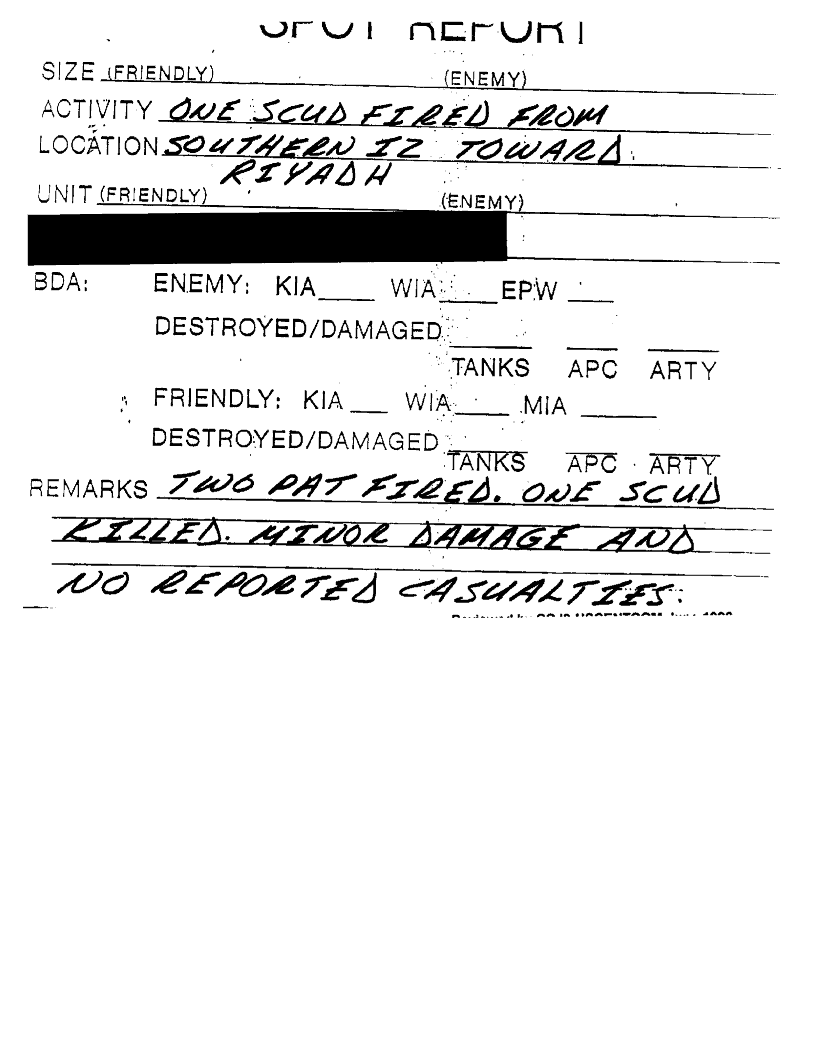 SPOT REPORT
SIZE (FRIENDLY) (ENEMY)
ACTIVITY ONE SCUD FIRED FROM
LOCATION SOUTHERN IZ TOWARD
RIYADH
UNIT (FRIENDLY) (ENEMY)
BDA: ENEMY: KIA____ WIA____ EPW ___
DESTROYED/DAMAGED
TANKS APC ARTY
FRIENDLY: KIA ___ WIA____ MIA _____
DESTROYED/DAMAGED
TANKS APC ARTY
REMARKS TWO PAT FIRED. ONE SCUD
KILLED. MINOR DAMAGE AND
NO REPORTED CASUALTIES.